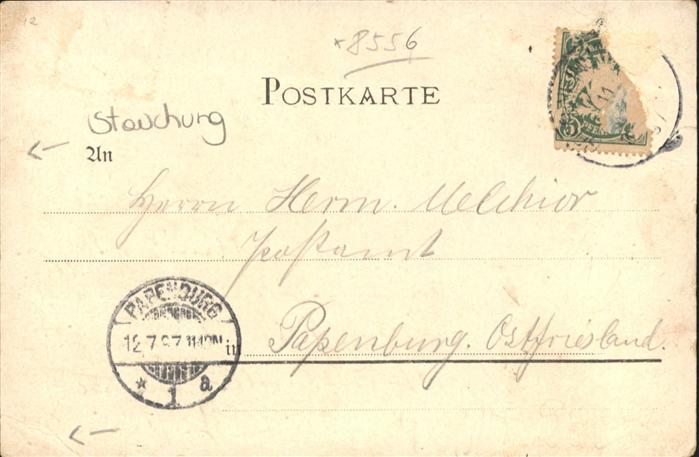 12
*8556
POSTKARTE
Stauchung
An
Herrn Herm. Melchior
Postamt
Papenburg. Ostfriesland.
in
PAPENBURG
12.7.97.11-12N
* 1 a
5 PFENNIG
11
97